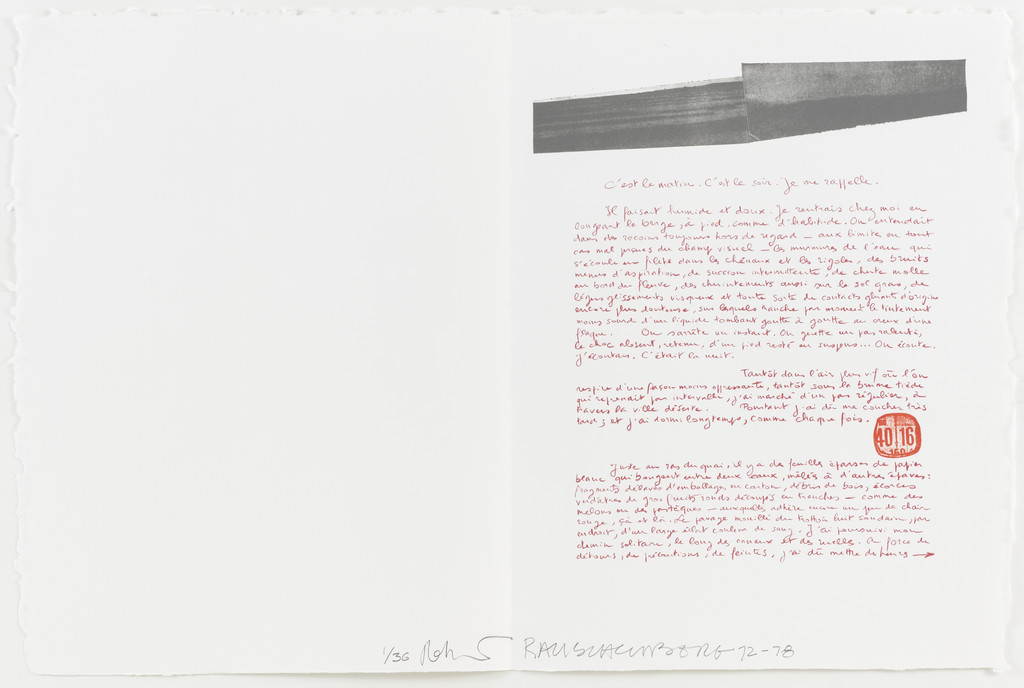 C'est le matin. C'est le soir. Je me rappelle.
Il faisait humide et doux. Je rentrais chez moi en
longeant la berge, à pied, comme d'habitude. On entendait
dans des recoins toujours hors de regard — aux limites en tout
cas mal perçues du champ visuel — les murmures de l'eau qui
s'écoule en filets dans les chéneaux et les rigoles, des bruits
menus d'aspiration, de succion intermittente, de chute molle
au bord du fleuve, des chuintements aussi sur le sol gras, de
légers glissements visqueux et toute sorte de contacts gluants d'origine
encore plus douteuse, sur lesquels tranche par moment le tintement
moins sourd d'un liquide tombant goutte à goutte au creux d'une
flaque. On s'arrête un instant. On guette un pas ralenti,
le choc absent, retenu, d'un pied resté en suspens... On écoute.
J'écoutais. C'était la nuit.
Tantôt dans l'air plus vif où l'on
respire d'une façon moins oppressante, tantôt sous la brume tiède
qui reprenait par intervalle, j'ai marché d'un pas régulier, à
travers la ville déserte. Pourtant j'ai dû me coucher très
tard ; et j'ai dormi longtemps, comme chaque fois.
40 16
160
Juste au ras du quai, il y a des feuilles éparses de papier
blanc qui bougent entre deux eaux, mêlés à d'autres épaves :
fragments délavés d'emballages en carton, débris de bois, écorces
verdâtres de gros fruits ronds découpés en tranches — comme des
melons ou des pastèques — auxquelles adhère encore un peu de chair
rouge, çà et là. Le pavage mouillé du trottoir luit soudain, par
endroit, d'un large éclat couleur de sang. J'ai poursuivi mon
chemin solitaire, le long des canaux et des ruelles. A force de
détours, de précautions, de feintes, j'ai dû mettre des heures →
1/36 RAUSCHENBERG 72-78